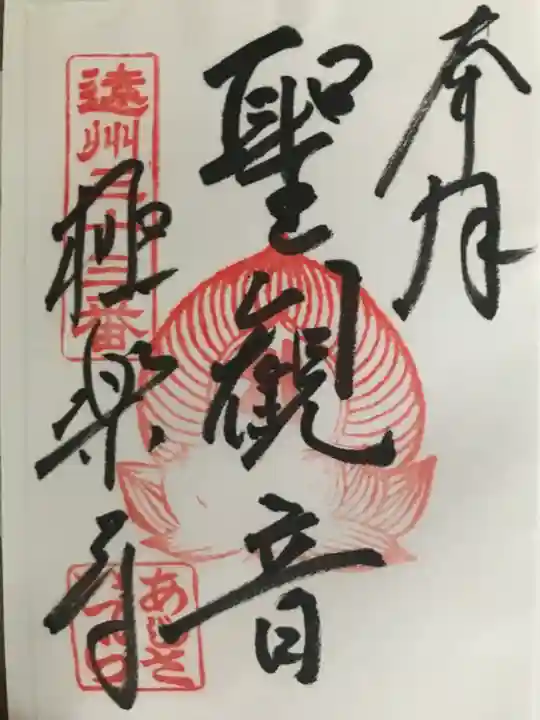 奉拝
聖観音
遠州三十三番
極楽寺
あじさ